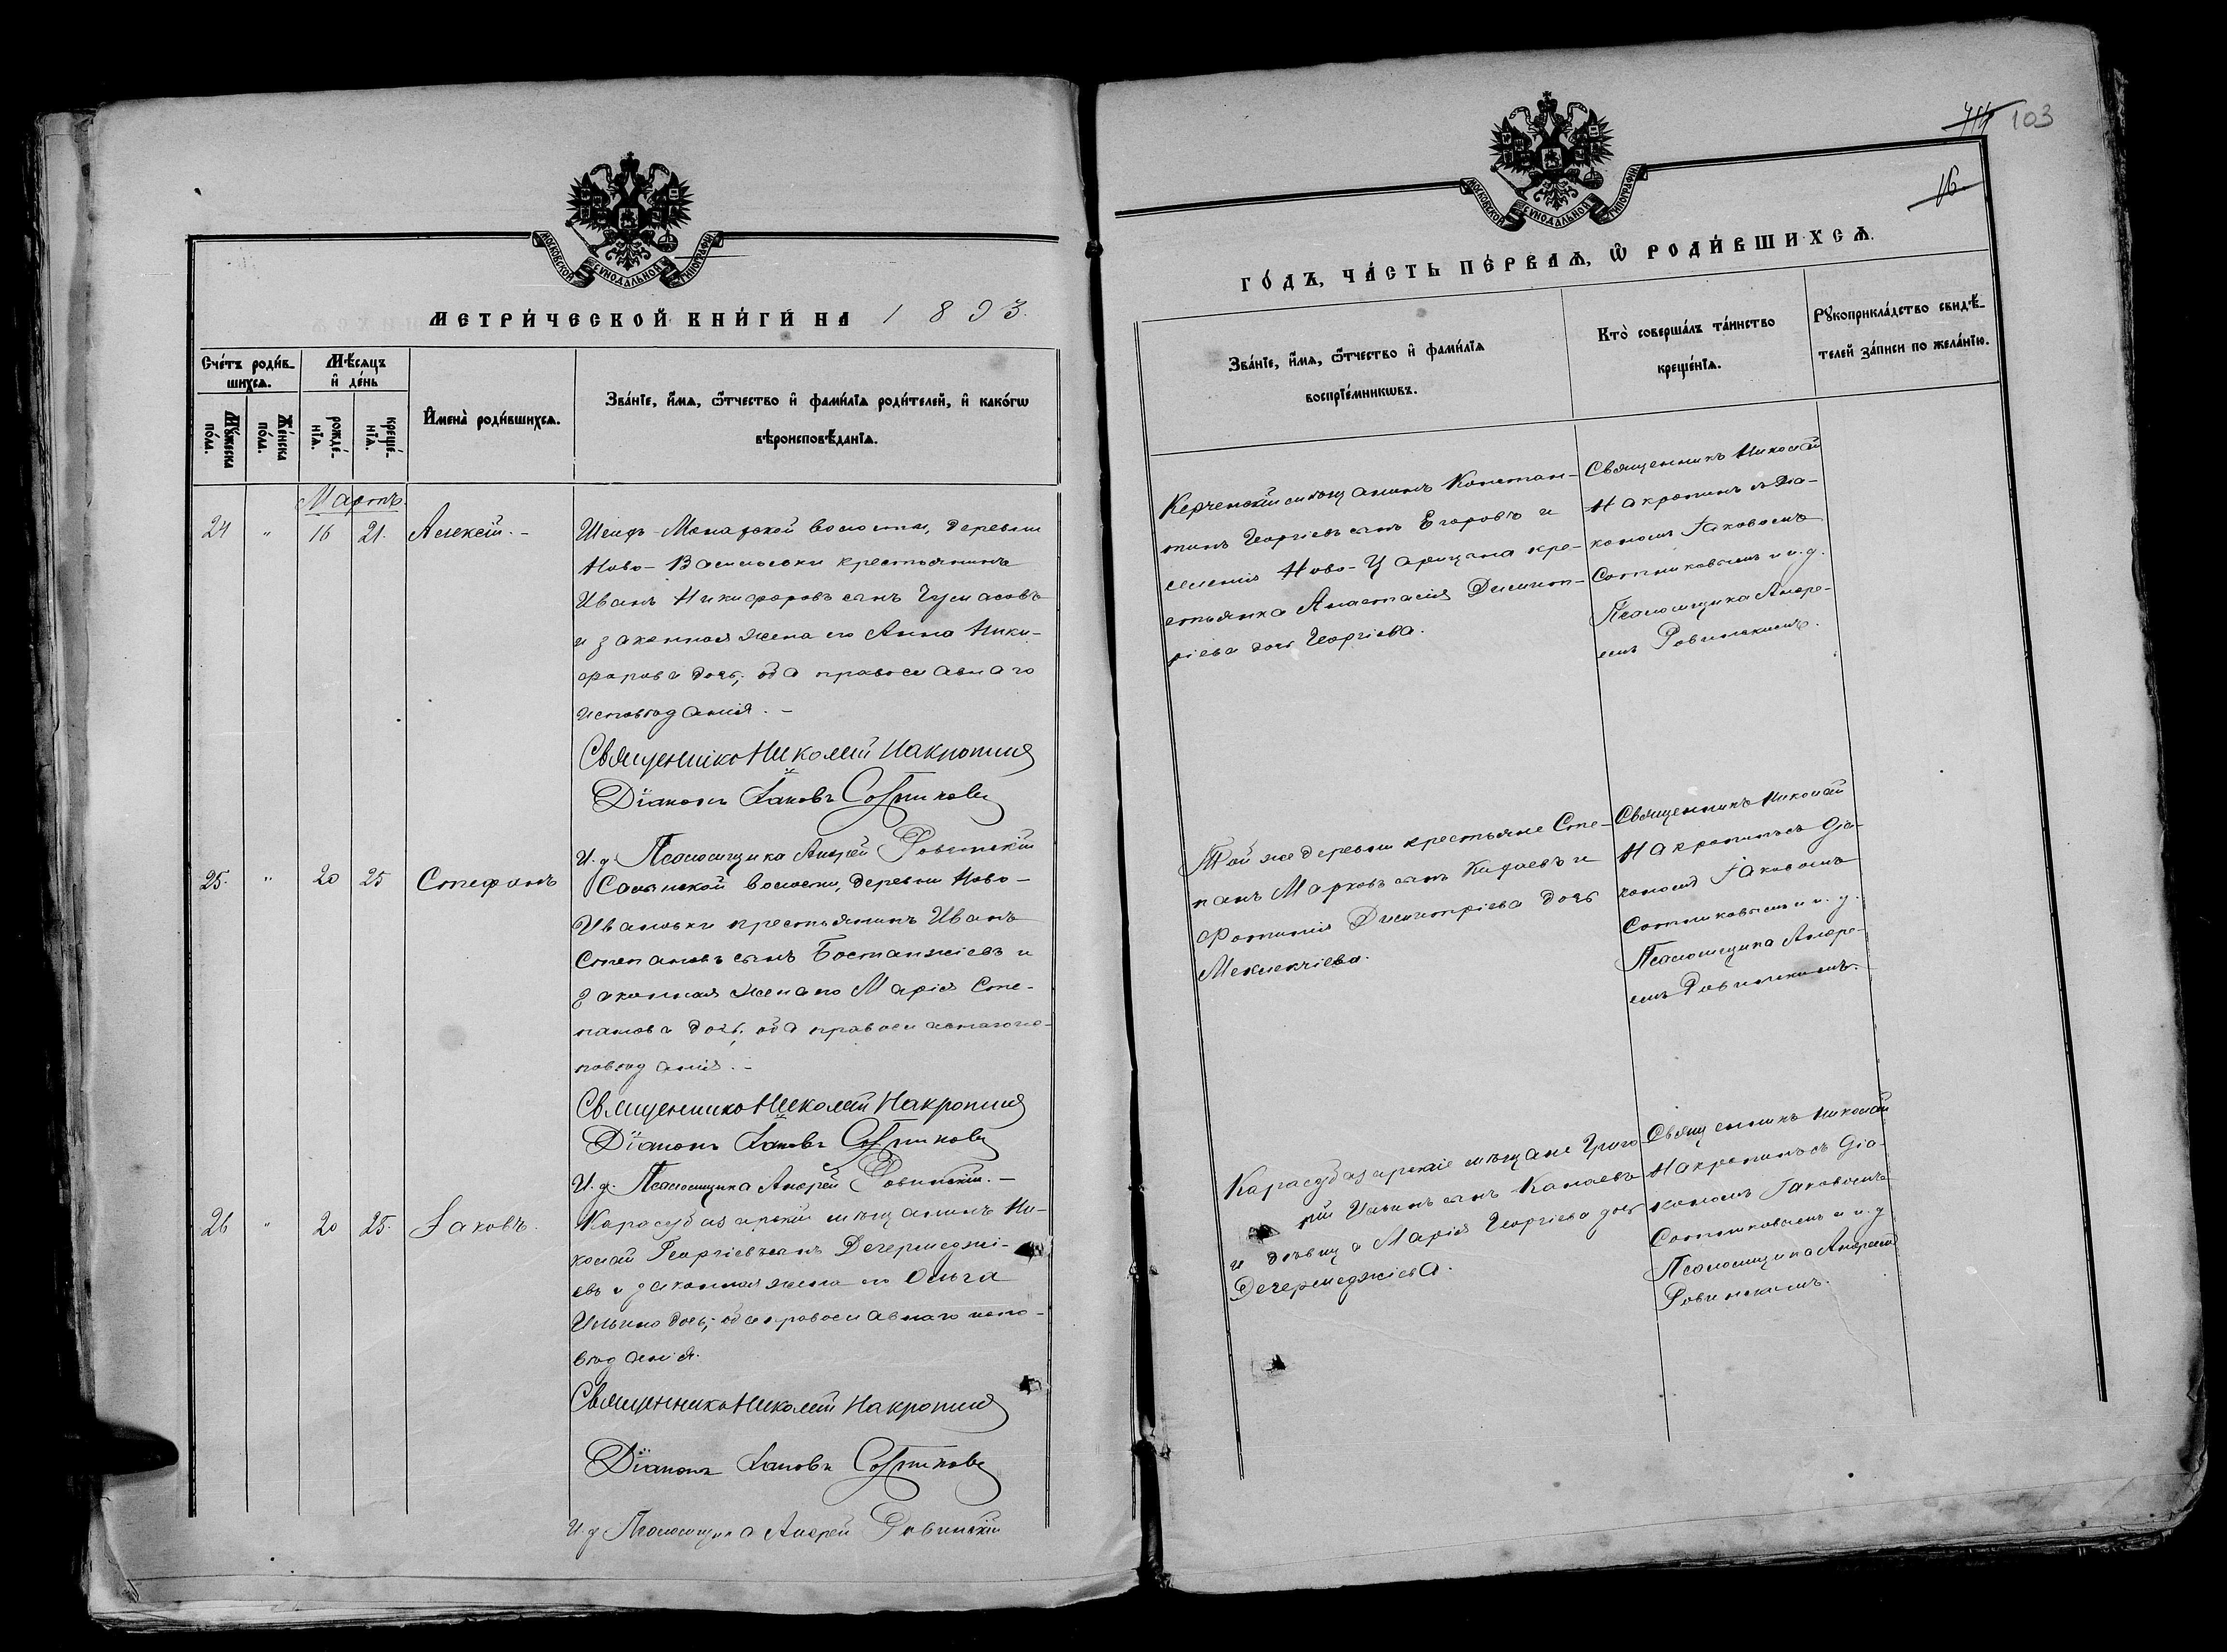 МОСКОВСКОЙ СѴНОДАЛЬНОЙ ТИПОГРАФІИ
МЕТРИЧЕСКОЙ КНИГИ НА 1893.
Счетъ родив-
шихся.
Мѣсяцъ
и день
Имена родившихся.
Званіе, имя, ѿтчество и фамилія родителей, и какогѡ
вѣроисповѣданія.
Мꙋжеска
пола.
Женска
пола.
рожде-
нія.
креще-
нія.
Мартъ.
24 " 16 21. Алексій. -
волости, деревни
Ново-Васильевки крестьянинъ
Иванъ Никифоровъ сынъ
и законная жена его Анна Ники-
форова дочь; оба православнаго
исповѣданія. -
Священникъ Николай Накропинъ
Діаконъ Іаковъ Сотниковъ
И. д. Псаломщика Андрей Ровинскій
25. " 20 25 Стефанъ
волости, деревни Ново-
Ивановки крестьянинъ Иванъ
Степановъ сынъ Бостанжіевъ и
законная жена его Марія Сте-
панова дочь; оба православнаго ис-
повѣданія. -
Священникъ Николай Накропинъ
Діаконъ Іаковъ Сотниковъ
И. д. Псаломщика Андрей Ровинскій. -
26 " 20 25. Іаковъ.
Карасубазарскій мѣщанинъ Ни-
колай Георгіевъ сынъ Дегермеджі-
евъ и законная жена его Ольга
Ильина дочь; оба православнаго испо-
вѣданія.
Священникъ Николай Накропинъ
Діаконъ Іаковъ Сотниковъ
И. д. Псаломщика Андрей Ровинскій
103
16
МОСКОВСКОЙ СѴНОДАЛЬНОЙ ТИПОГРАФІИ
ГОДЪ, ЧАСТЬ ПЕРВАЯ, Ѡ РОДИВШИХСЯ.
Званіе, имя, ѿтчество и фамилія
воспріемникѡвъ.
Кто совершалъ таинство
крещенія.
Рꙋкоприкладство свидѣ-
телей записи по желанію.
Керченскій мѣщанинъ Констан-
тинъ Георгіевъ сынъ Егоровъ и
селенія Ново-Царицына кре-
стьянка Анастасія Димит-
ріева дочь Георгіева.
Священникъ Николай
Накропинъ съ Діа-
кономъ Іаковомъ
Сотниковымъ и и. д.
Псаломщика Андре-
емъ Ровинскимъ.
Той же деревни крестьяне Сте-
панъ Марковъ сынъ и
Фотинія Димитріева дочь
Мекмекчіева.
Священникъ Николай
Накропинъ съ Діа-
кономъ Іаковомъ
Сотниковымъ и и. д.
Псаломщика Андре-
емъ Ровинскимъ.
Карасубазарскіе мѣщане Григо-
рій Ильинъ сынъ Канаевъ
и дѣвица Марія Георгіева дочь
Дегермеджіева.
Священникъ Николай
Накропинъ съ Діа-
кономъ Іаковомъ
Сотниковымъ и и. д.
Псаломщика Андреемъ
Ровинскимъ.